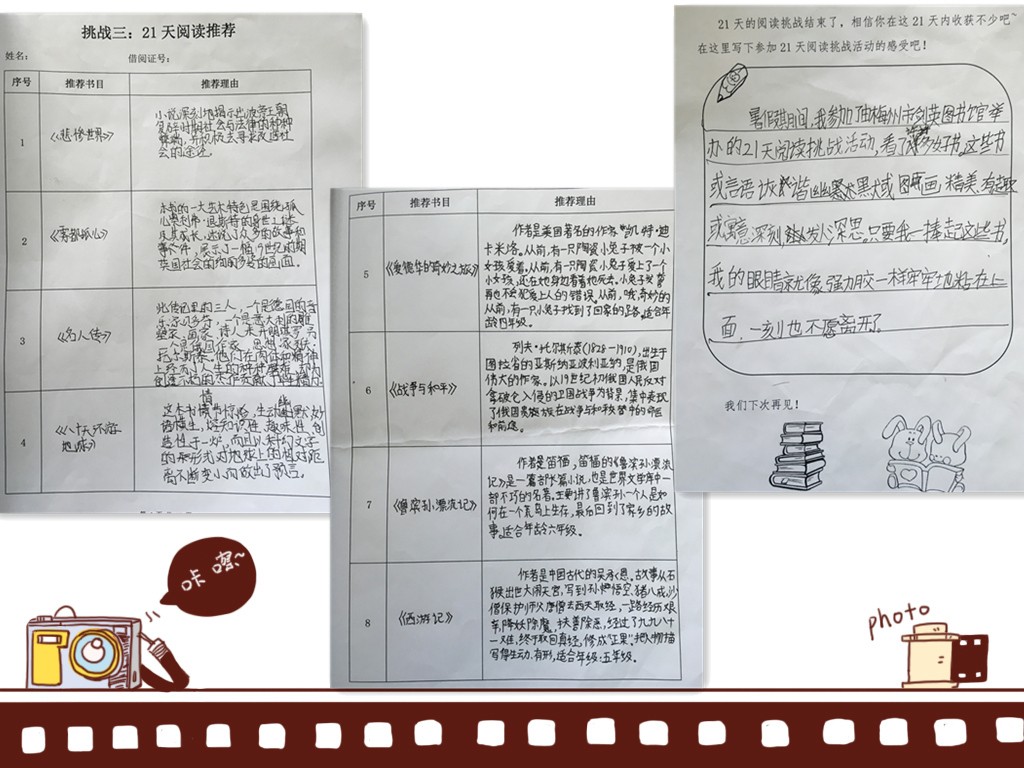 挑战三：21天阅读推荐
姓名：
借阅证号：
序号
推荐书目
推荐理由
1
《悲惨世界》
小说深刻地揭示出波旁王朝
复辟时期社会与法律的种种
弊病，并积极去寻求改造社
会的途迳。
2
《雾都孤儿》
本书的一大艺术特色是围绕孤
儿奥利弗·退斯特的身世之谜
及其成长，述说了众多的故事和
事件，展示了一幅19世纪时期
英国社会的绚丽多姿的画面。
3
《名人传》
此传记里的三人，一个是德国的音
4
《八十天环游
地球》
情
幽
这本书情节惊险，生动幽默妙
语横生，熔知识性、趣味性、创
造性于一炉，而且以未的文字
的形式对地球上的相对距
离不断变小的做出了预言。
序号
推荐书目
推荐理由
5
《爱德华的奇妙之旅》
作者是美国著名的作者"凯特·迪
卡米洛。从前，有一只陶瓷小兔子被一个小
女孩爱着。从前，有一只陶瓷小兔子爱上了一个
小女孩，还在她身边看着她死去。小兔子发誓
再也不会犯爱上人的错误。从前，哦，奇妙的
从前，有一只小兔子找到了回家的路。适合年
龄四年级。
6
《战争与和平》
列夫·托尔斯泰(1828-1910)，出生于
图拉省的亚斯纳亚波利亚纳，是俄国
伟大的作家。以19世纪初俄国人民反对
拿破仑入侵的卫国战争为背景，集中表现
了俄国贵族在战争与和平中的命运
和前途。
7
《鲁滨孙漂流记》
作者是笛福，笛福的《鲁滨孙漂流
记》是一篇部长篇小说，也是世界文学库中一
部不巧的名著。主要讲了鲁滨孙一个人是如
何在一个荒岛上生存，最后回到了家乡的故
事。适合年龄六年级。
8
《西游记》
作者是中国古代的吴承恩。故事从石
猴出世大闹天宫，写到孙悟空、猪八戒、沙
僧保护师父唐僧去西天取经，一路经历艰
辛，降妖除魔，扶善除恶，经过了九九八十
一难，终于取回真经，修成"正果"。把人物描
写得生动、有形，适合年级：五年级。
21天的阅读挑战结束了，相信你在这21天内收获不少吧~
在这里写下参加21天阅读挑战活动的感受吧！
暑假期间，我参加了由梅州市剑英图书馆举
办的21天阅读挑战活动，看了许多好书。这些书
或言语诙谐幽默或图画精美、有趣
或寓意深刻、引人发深思。只要我一捧起这些书，
我的眼睛就像强力胶一样牢牢地粘在上
面，一刻也不愿离开了。
我们下次再见！
咔嚓~
photo